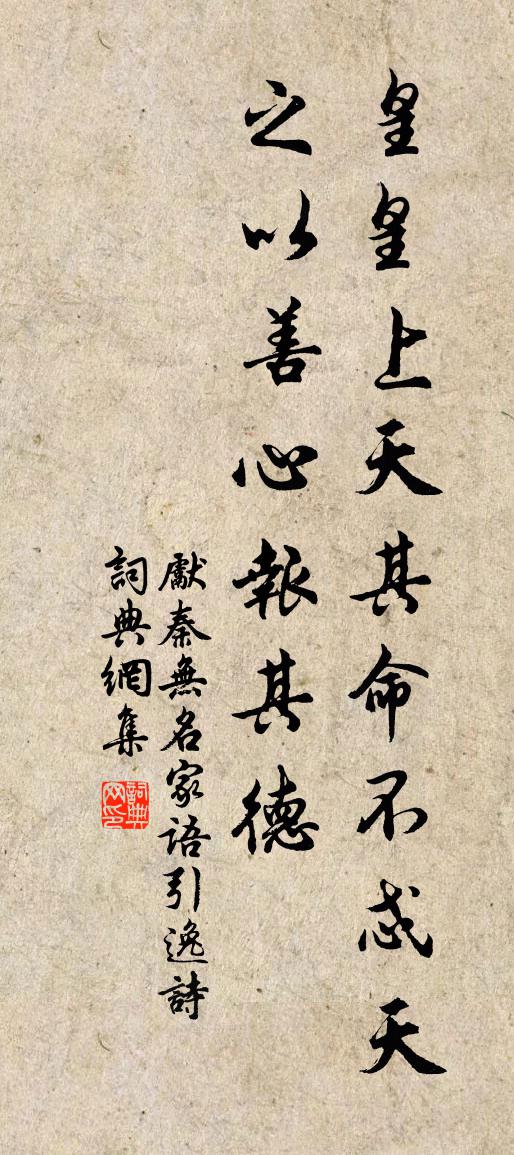 皇皇上天其命不忒天
之以善心報其德
獻秦無名家語引逸詩
詞典網集
詞典网印